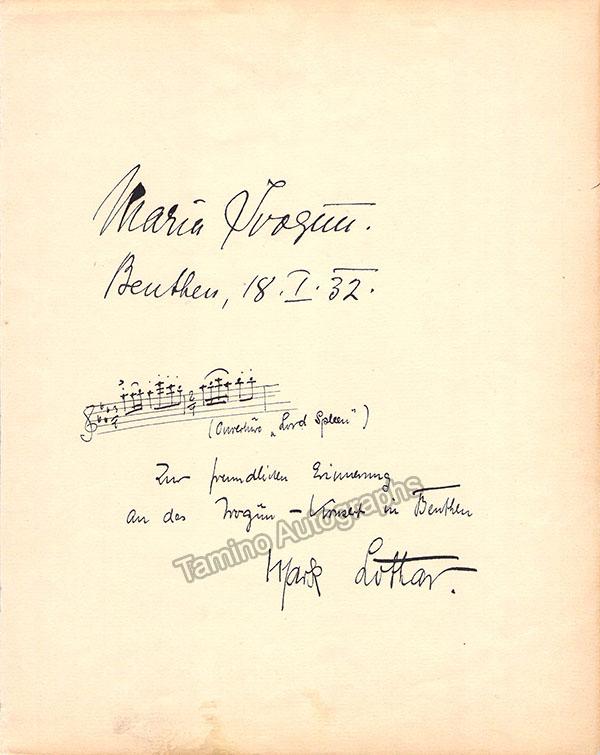 Maria Ivogün.
Beuthen, 18. I. 32.
(Ouvertüre „Lord Spleen")
Zur freundlichen Erinnerung
an das Ivogün - Konzert in Beuthen
Mark Lothar.
Tamino Autographs